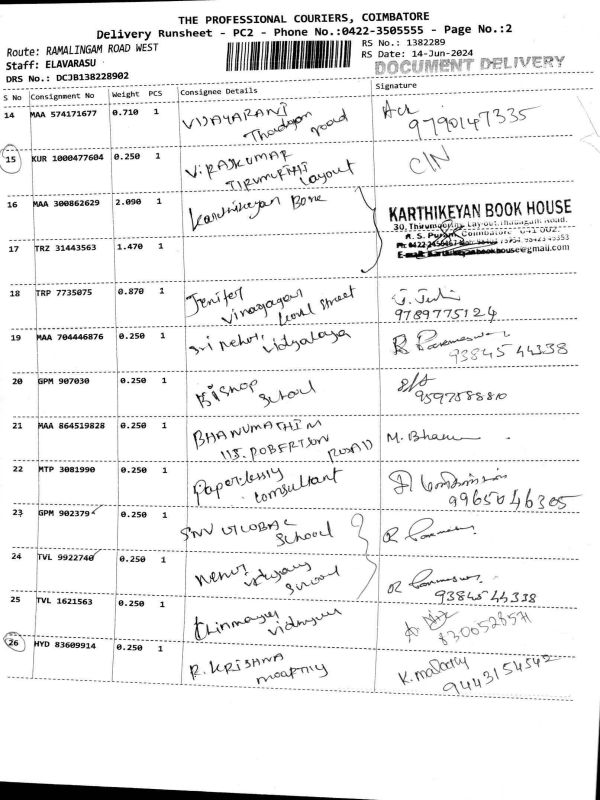 THE PROFESSIONAL COURIERS, COIMBATORE
Delivery Runsheet - PC2 - Phone No.:0422-3505555 - Page No.:2
Route: RAMALINGAM ROAD WEST
RS No.: 1382289
Staff: ELAVARASU
RS Date: 14-Jun-2024
DRS No.: DCJB138228902
DOCUMENT DELIVERY
S No Consignment No Weight PCS Consignee Details Signature
14 MAA 574171677 0.710 1 VIJAYARANI
Road
9790147335
15 KUR 1000477604 0.250 1 VIRAJKUMAR
Layout
C/N
16 MAA 300862629 2.090 1 Karthikeyan
KARTHIKEYAN BOOK HOUSE
17 TRZ 31443563 1.470 1
18 TRP 7735075 0.870 1 Jenifer
Vinayagar
Street
9789775124
19 MAA 704446876 0.250 1 Sri Nehru Vidyalaya
93845 44338
20 GPM 907030 0.250 1 Bishop
School
9597588810
21 MAA 864519828 0.250 1 BHANUMATHI M
ROBERTSON
ROAD
22 MTP 3081990 0.250 1 Paperlessly
Consultant
9965046305
23 GPM 902379 0.250 1 SNV GLOBAL
School
24 TVL 9922740 0.250 1 Nehru
School
93845 44338
25 TVL 1621563 0.250 1 Chinmaya
8300528571
26 HYD 83609914 0.250 1 R. KRISHNA
MOORTHY
9443154542